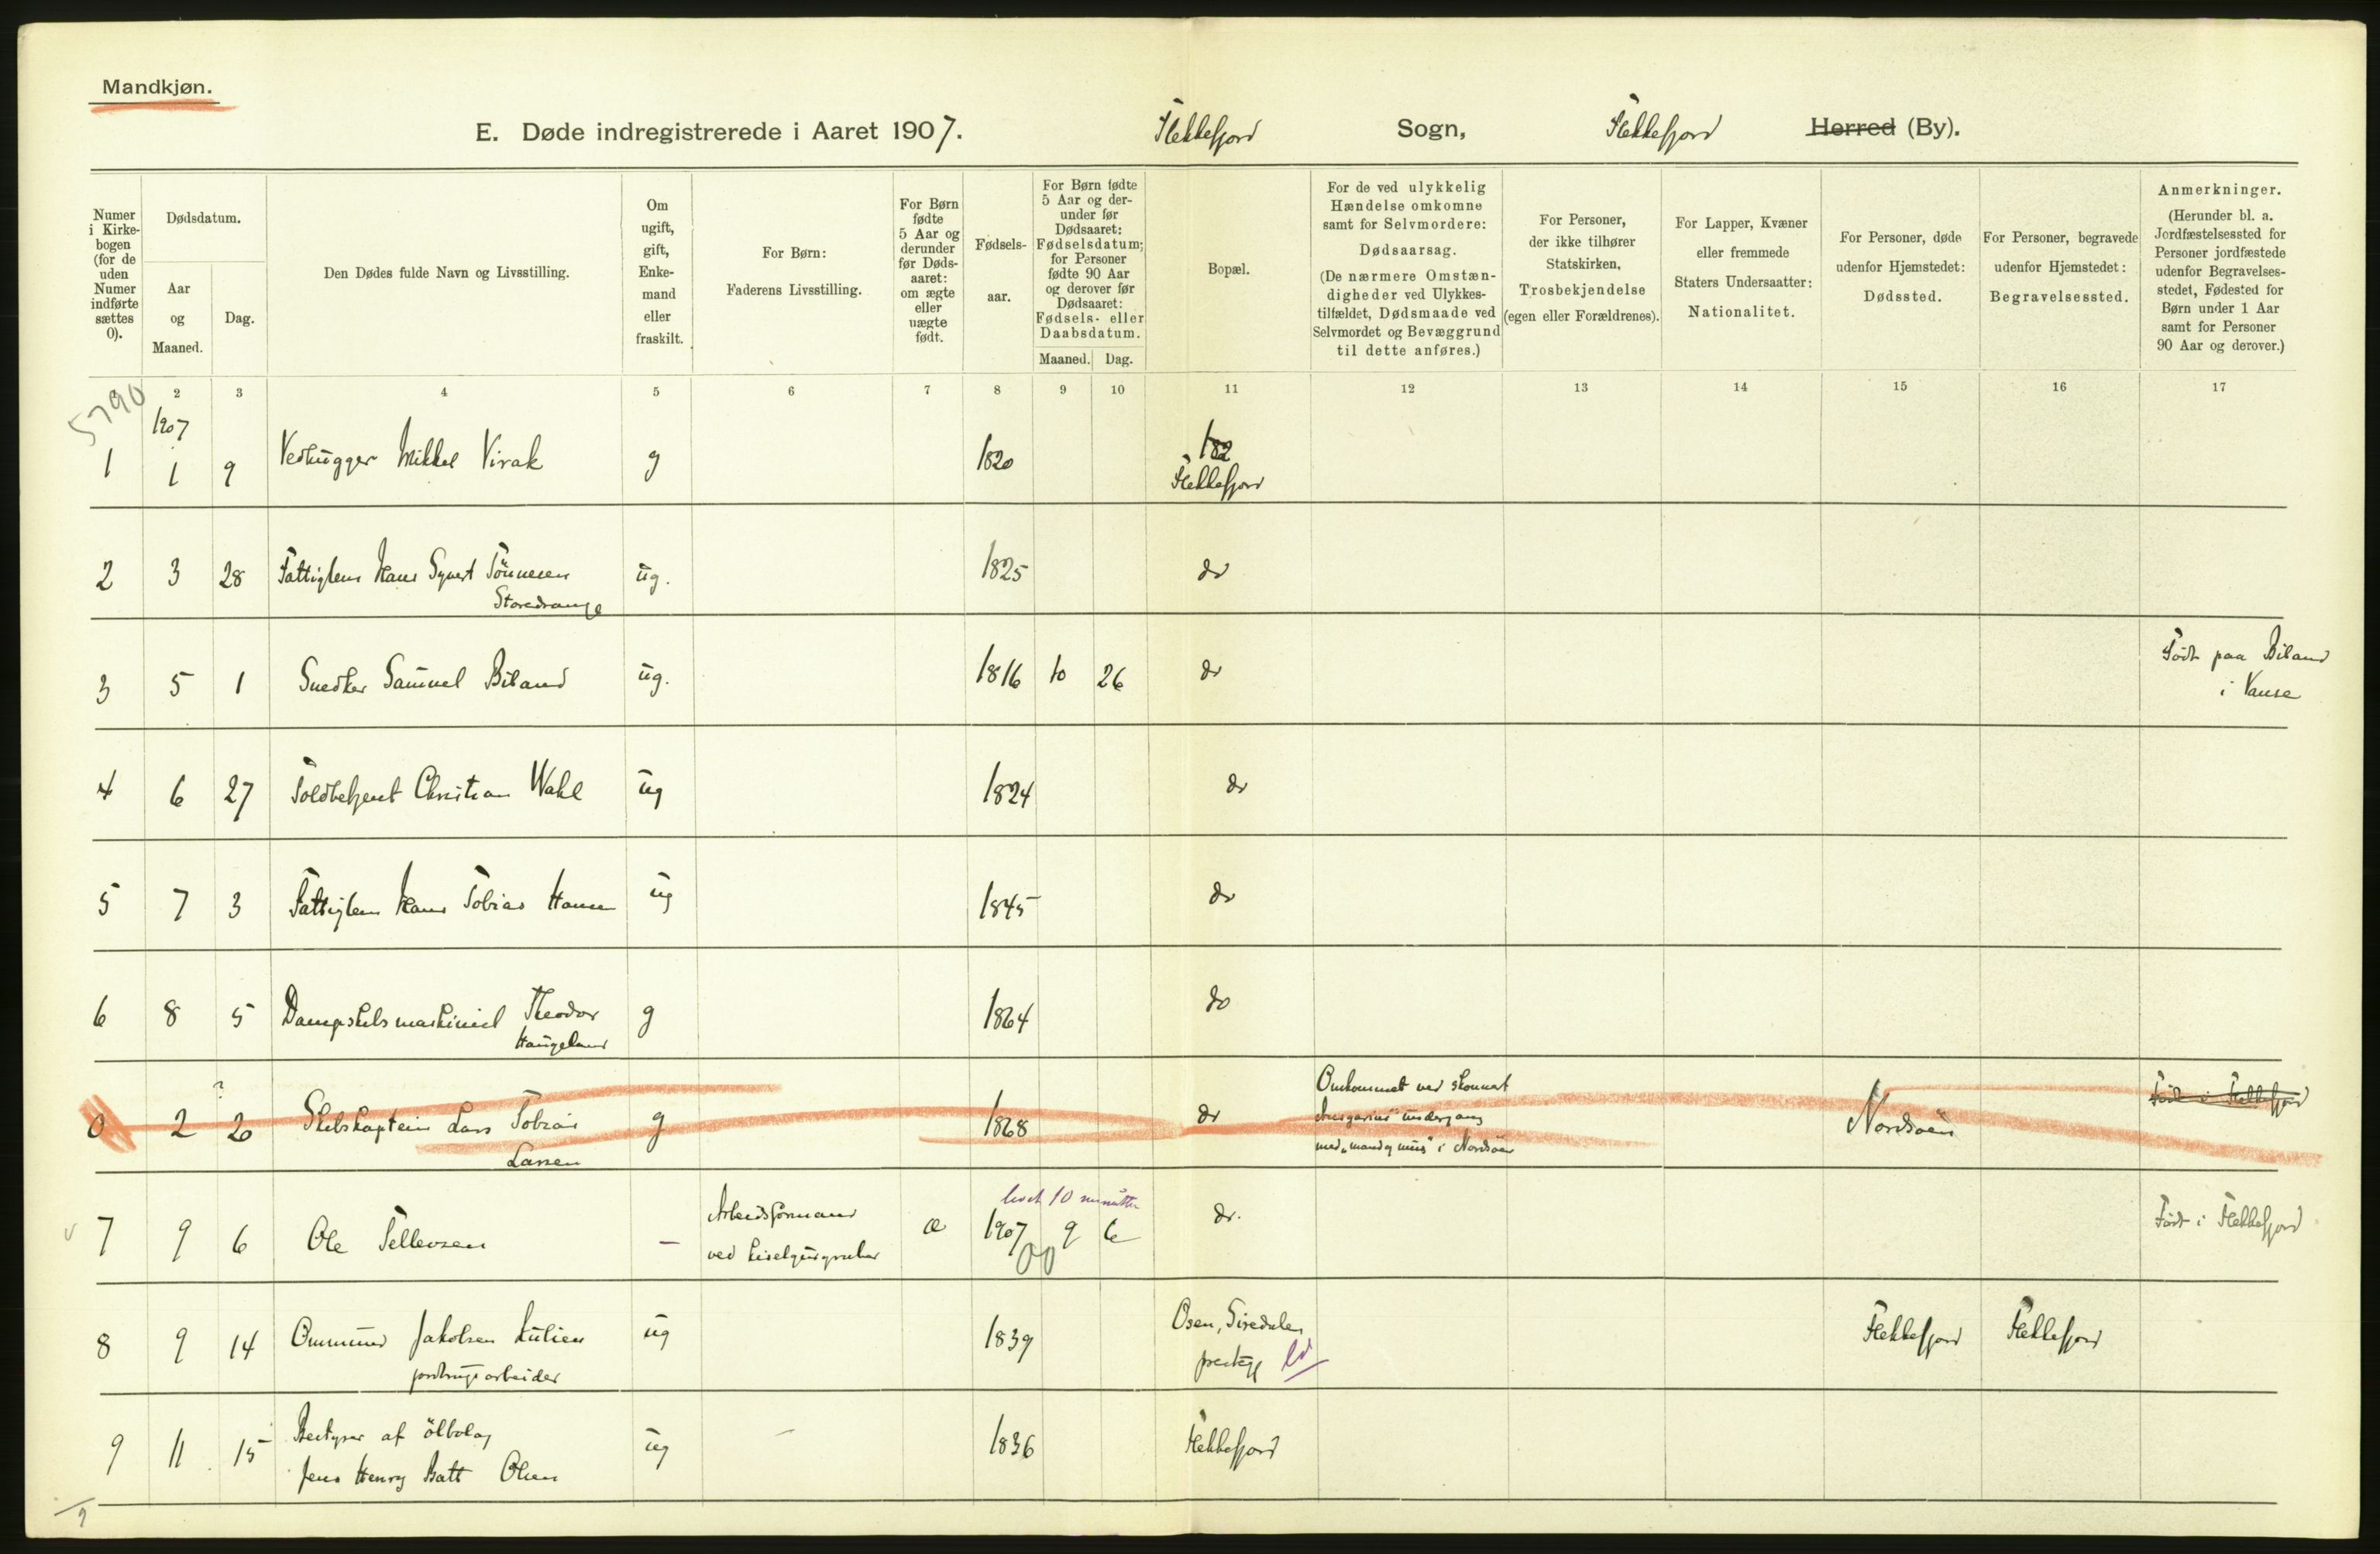 Mandkjøn.
E. Døde indregistrerede i Aaret 1907. Flekkefjord Sogn, Flekkefjord Herred (By).
Numer i Kirkebogen (for de uden Numer indførte sættes 0).
Dødsdatum.
Aar og Maaned.
Dag.
Den Dødes fulde Navn og Livsstilling.
Om ugift, gift, Enkemand eller fraskilt.
For Børn: Faderens Livsstilling.
For Børn fødte 5 Aar og derunder før Dødsaaret: om ægte eller uægte født.
Fødselsaar.
For Børn fødte 5 Aar og derunder før Dødsaaret: Fødselsdatum; for Personer fødte 90 Aar og derover før Dødsaaret: Fødsels- eller Daabsdatum.
Maaned. Dag.
Bopæl.
For de ved ulykkelig Hændelse omkomne samt for Selvmordere: Dødsaarsag. (De nærmere Omstændigheder ved Ulykkestilfældet, Dødsmaade ved Selvmordet og Bevæggrund til dette anføres.)
For Personer, der ikke tilhører Statskirken, Trosbekjendelse (egen eller Forældrenes).
For Lapper, Kvæner eller fremmede Staters Undersaatter: Nationalitet.
For Personer, døde udenfor Hjemstedet: Dødssted.
For Personer, begravede udenfor Hjemstedet: Begravelsessted.
Anmerkninger. (Herunder bl. a. Jordfæstelsessted for Personer jordfæstede udenfor Begravelsesstedet, Fødested for Børn under 1 Aar samt for Personer 90 Aar og derover.)
2 3 4 5 6 7 8 9 10 11 12 13 14 15 16 17
5790
1907 182
1 1 9 Vedhugger Mikkel Virak g 1820 Flekkefjord
2 3 28 Fattiglem Hans Syvert Tönnesen ug. 1825 do
Storedrange
3 5 1 Snedker Samuel Biland ug. 1816 10 26 do Född paa Biland
i Vanse
4 6 27 Toldbetjent Christian Wahl ug 1824 do
5 7 3 Fattiglem Hans Tobias Hansen ug 1845 do
6 8 5 Dampskibsmaskinist Theodor g 1864 do
Haugeland
?
0 2 20 Skibskaptein Lars Tobias g 1868 do Omkommet ved skonnert Nordsöen Född i Flekkefjord
Ansgarius" undergang
Larsen med „mand og mus" i Nordsöen
levet 10 minutter
7 9 6 Ole Tellevsen – Arbeidsformand æ 1907 9 6 do. Född i Flekkefjord
ved kiselgurgruber
00
8 9 14 Ommund Jakobsen ug 1839 Osen, Siredalen Flekkefjord Flekkefjord
jordbrugsarbeider prestegj
9 11 15 Bestyrer af ölbolag ug – 1836 Flekkefjord
Jens Henry Batt Olsen
9